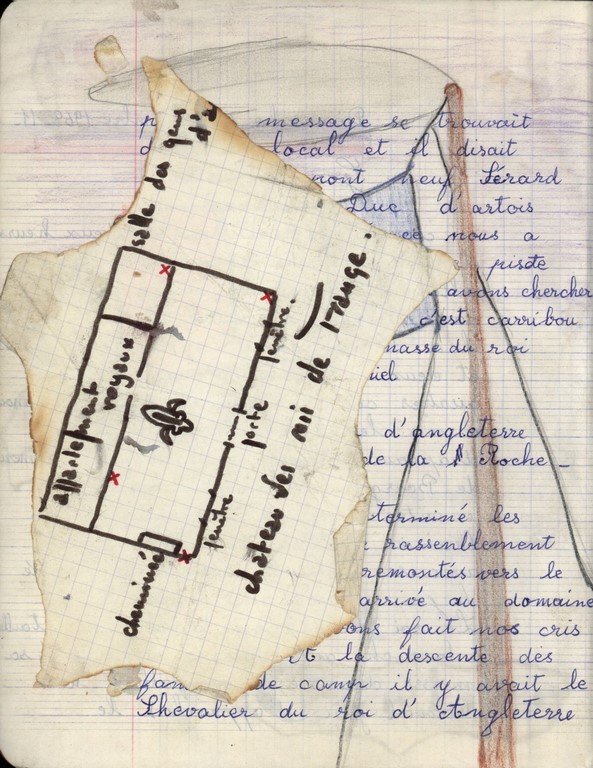 message se trouvait
local et il disait
pont neuf Lérard
Duc d'artois
ce nous a
piste
avons chercher
c'est carribou
masse du roi
d'angleterre
de la Roche -
terminé les
rassenblement
remontés vers le
arrivé au domaine
ons fait nos cris
t la descente des
de camp il y avait le
Lhevalier du roi d'Angleterre
salle des gens
appartement royaux
cheminée
fenêtre
porte
fenêtre.
chateau des roi de france.